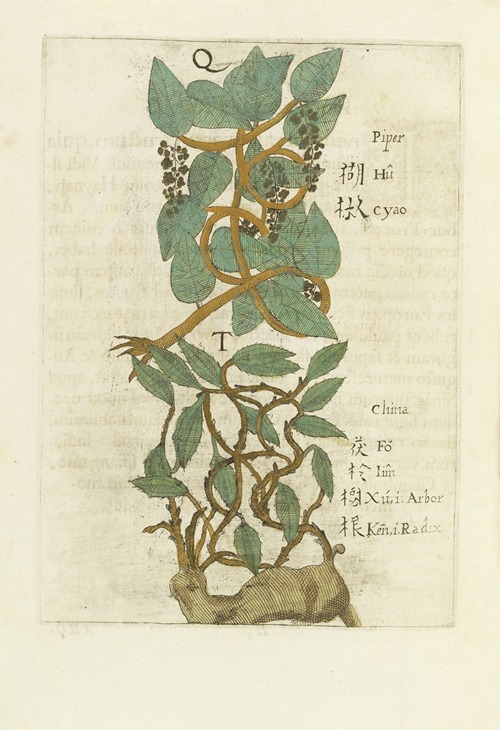 Q
Piper
椒 Hû
椒 Cyao
T
China
茯 Fŏ
苓 lim̂
樹 Xú. i. Arbor
根 Ken̄. i. Radix